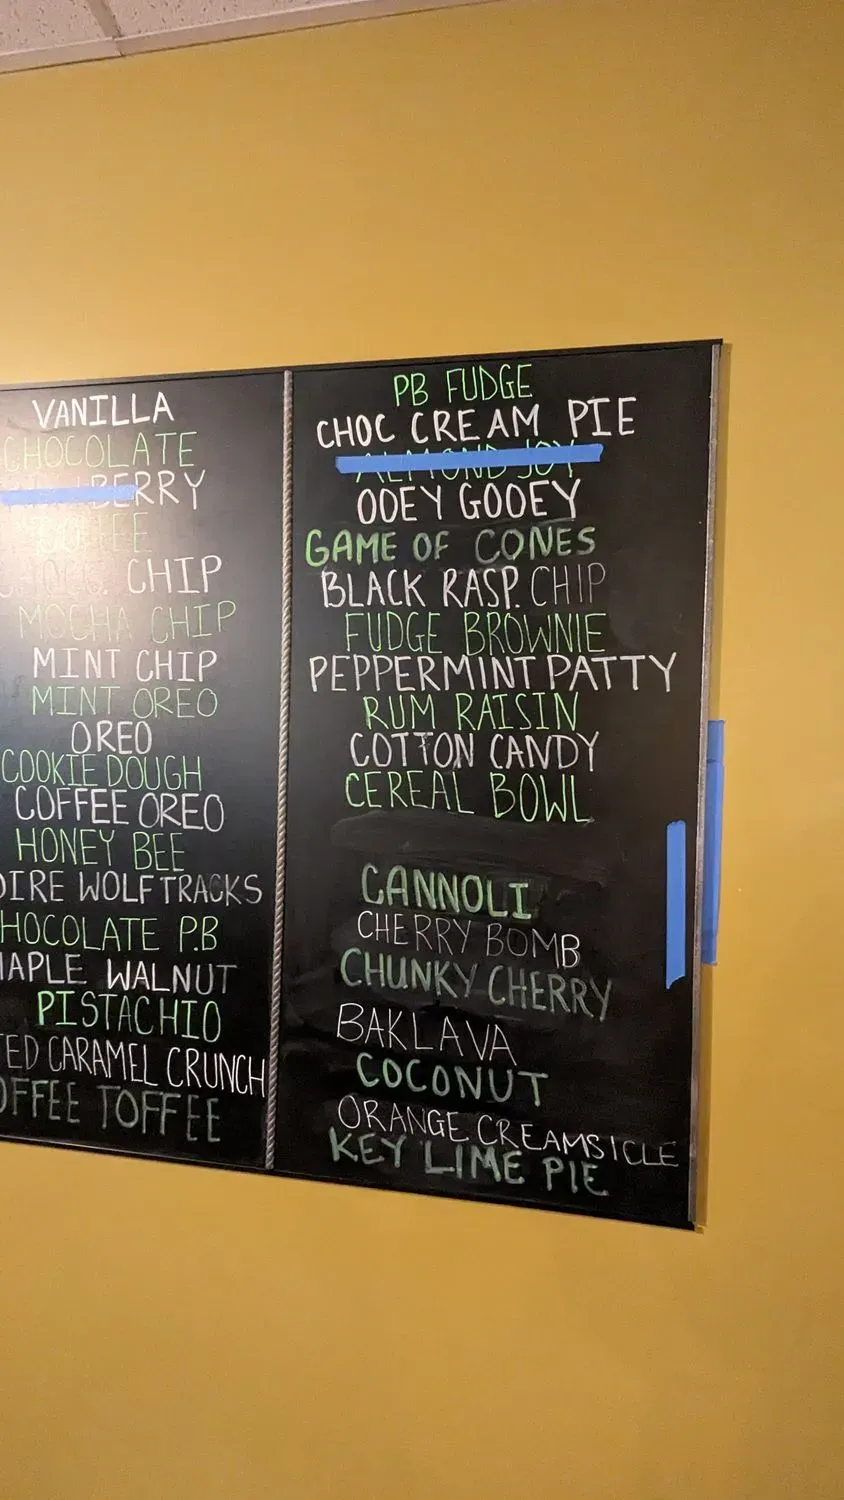 VANILLA
CHOCOLATE
BERRY
COFFEE
CHOC. CHIP
MOCHA CHIP
MINT CHIP
MINT OREO
OREO
COOKIE DOUGH
COFFEE OREO
HONEY BEE
DIRE WOLF TRACKS
HOCOLATE P.B
MAPLE WALNUT
PISTACHIO
TED CARAMEL CRUNCH
OFFEE TOFFEE
PB FUDGE
CHOC CREAM PIE
ALMOND JOY
OOEY GOOEY
GAME OF CONES
BLACK RASP. CHIP
FUDGE BROWNIE
PEPPERMINT PATTY
RUM RAISIN
COTTON CANDY
CEREAL BOWL
CANNOLI
CHERRY BOMB
CHUNKY CHERRY
BAKLAVA
COCONUT
ORANGE CREAMSICLE
KEY LIME PIE